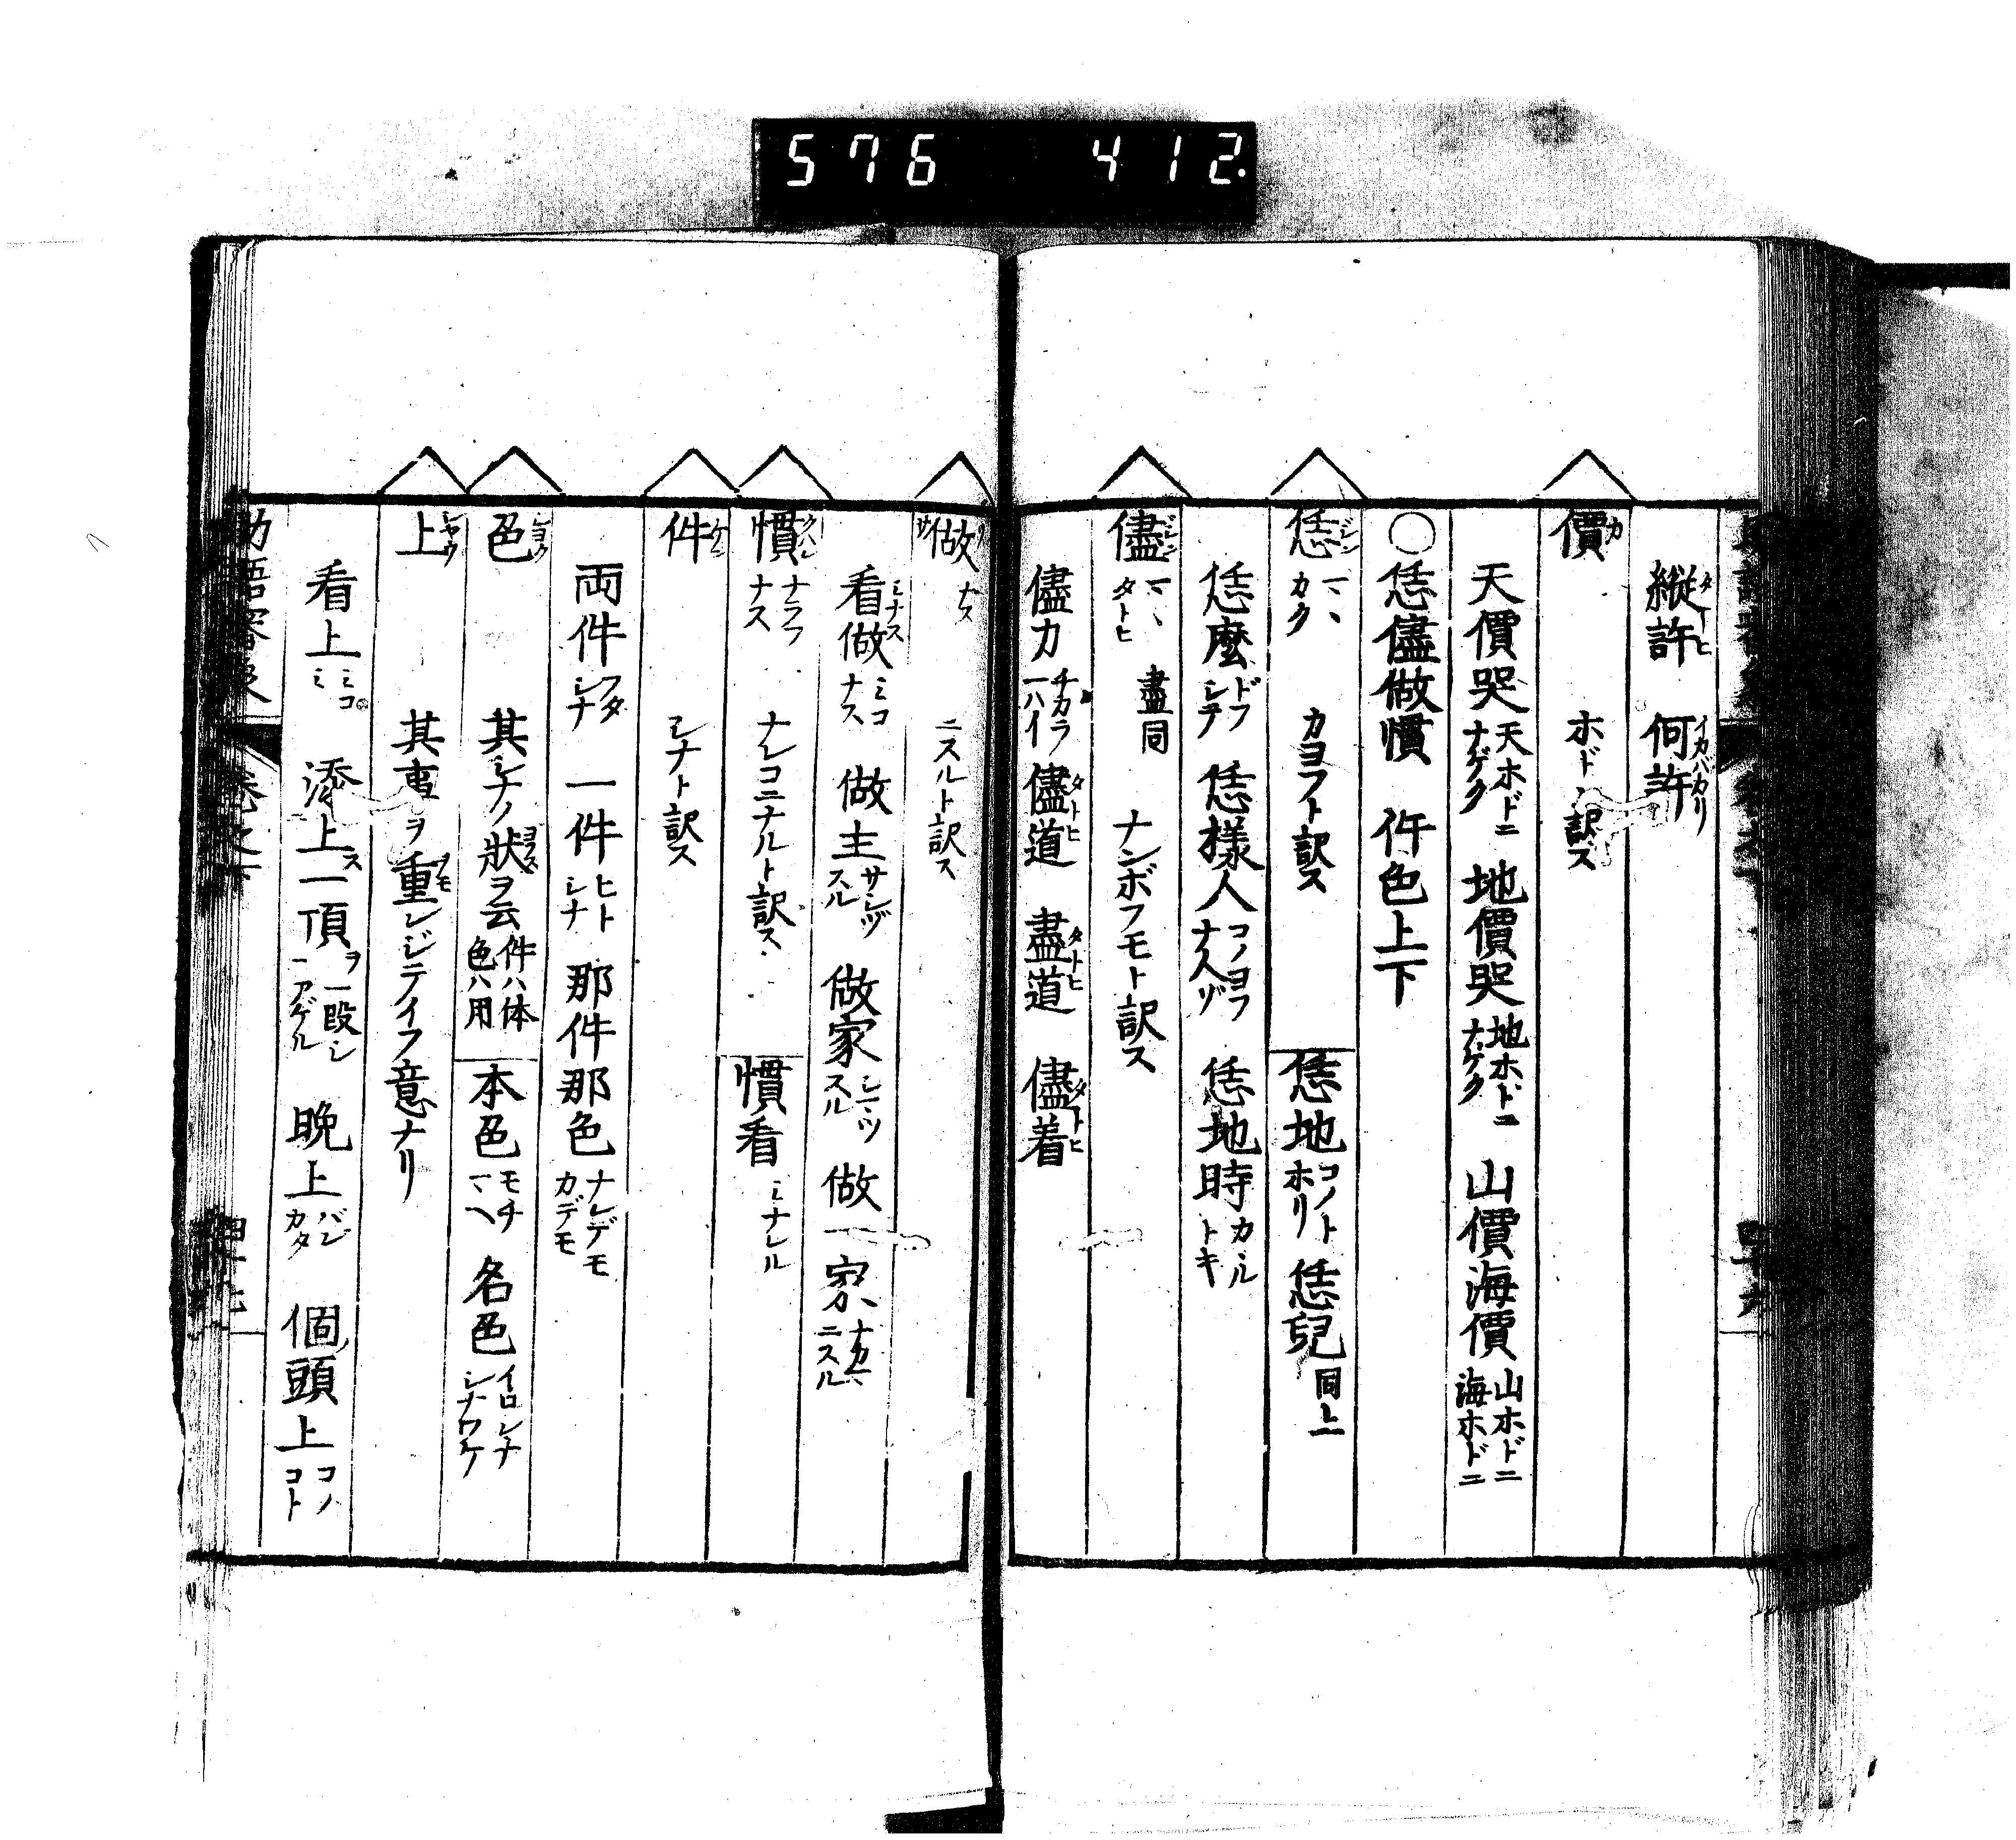 576 412.
縦許タトヒ 何許イカバカリ
價カ ホド訳ス
天價哭天ホドニナゲク 地價哭地ホドニナゲク 山價海價山ホドニ海ホドニ
○恁儘做慣 件色上下
恁ジン カク カヨフト訳ス 恁地コノトホリ 恁兒同上
恁麼ドフシテ 恁様人コノヨフナ人ゾ 恁地時カヽルトキ
儘ジン タトヒ 盡同 ナンボフモト訳ス
儘力チカラ一ハイ 儘道タトヒ 盡道タトヒ 儘着タトヒ
做 ナス ニスルト訳ス
看做ミナス ミコナス 做主サシヅスル 做家シンシヤウスル 做一家
慣クハン ナラフナス ナレコニナルト訳ス 慣看ミナレル
件ケン シナト訳ス
両件フタシナ 一件ヒトシナ 那件那色ナレデモカデモ
色シヨク 其シナノ狀ヲ云件ハ体色ハ用 本色モチマヘ 名色イロシナシナワケ
上シヤウ 其事ヲ重レジテイフ意ナリ
看上ミコミ 添上一頂ヲ 晩上バンカタ 個頭上コノコト